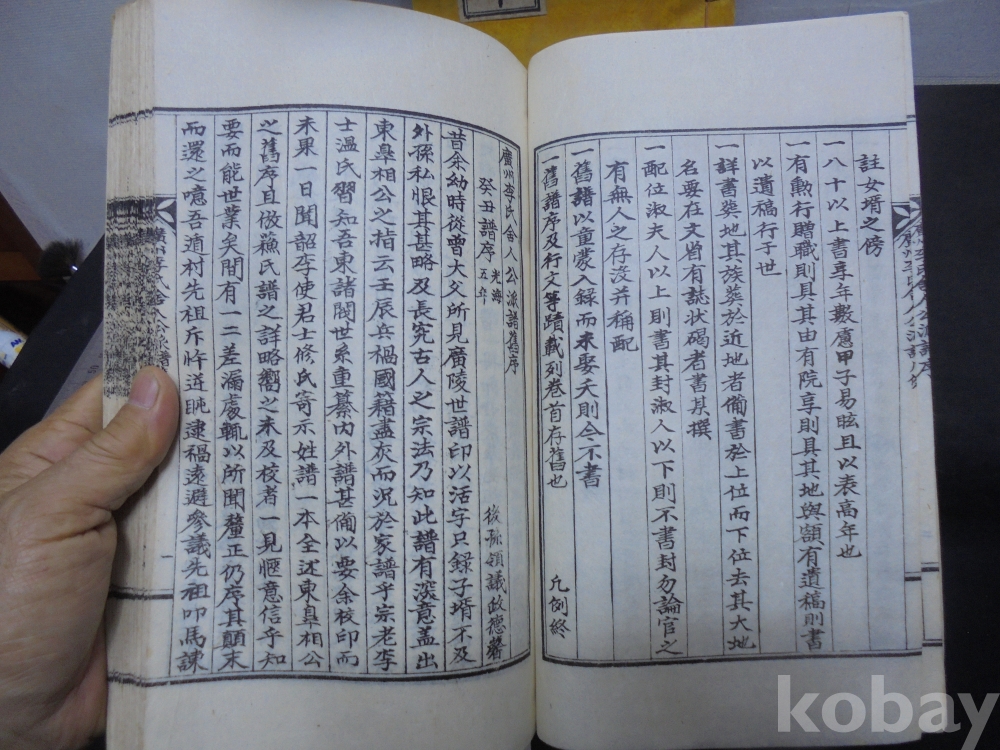 註女壻之傍
一八十以上書享年數慮甲子易眩且以表高年也
一有勲行贈職則具其由有院享則具其地與額有遺稿則書
以遺稿行于世
一詳書葬地其族葬於近地者備書於上位而下位去其大地
名要在文曾有誌狀碣者書某撰
一配位淑夫人以上則書其封淑人以下則不書封勿論官之
有無人之存没并稱配
一舊譜以童蒙入録而未娶夭則今不書
一舊譜序及行文等蹟載列卷首存舊也
凡例終
廣州李氏舍人公派譜舊序
癸丑譜序 光海五年
後孫領議政德馨
昔余幼時從曾大父所見廣陵世譜印以活字只録子壻不及
外孫私恨其甚略及長究古人之宗法乃知此譜有深意盖出
東臯相公之指云壬辰兵禍國籍盡灰而況於家譜乎宗老李
士温氏習知吾東諸閥世系重纂内外譜甚備以要余校印而
未果一日聞韶李使君士修氏寄示姓譜一本全述東臯相公
之舊序且倣蘇氏譜之詳略嚮之未及校者一見愜意信乎知
要而能世業矣間有一二差漏處輒以所聞釐正仍序其顛末
而還之噫吾遁村先祖斥旽逮禍遠避參議先祖叩馬諫
kobay